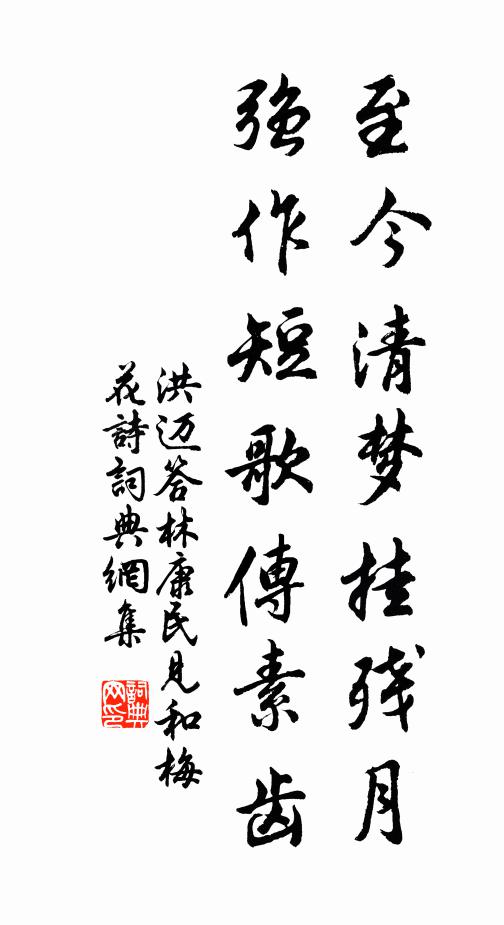 至今清梦挂残月
强作短歌傳素齿
洪迈答林康民見和梅
花詩詞典網集
詞典网印